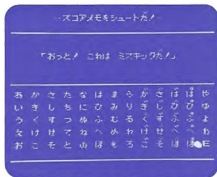 --スコアメモをシュートだ!--
「おっと! これは ミスキックだ!」
あ か さ た な は ま ら が ざ ば ぱ や
い き し ち に ひ み り ぎ じ び ぴ ゆ
う く す つ ぬ ふ む る ぐ ず ぶ ぷ よ
え け せ て ね へ め れ げ ぜ べ ぺ わ
お こ そ と の ほ も ろ ご ぞ ぼ ぽ E